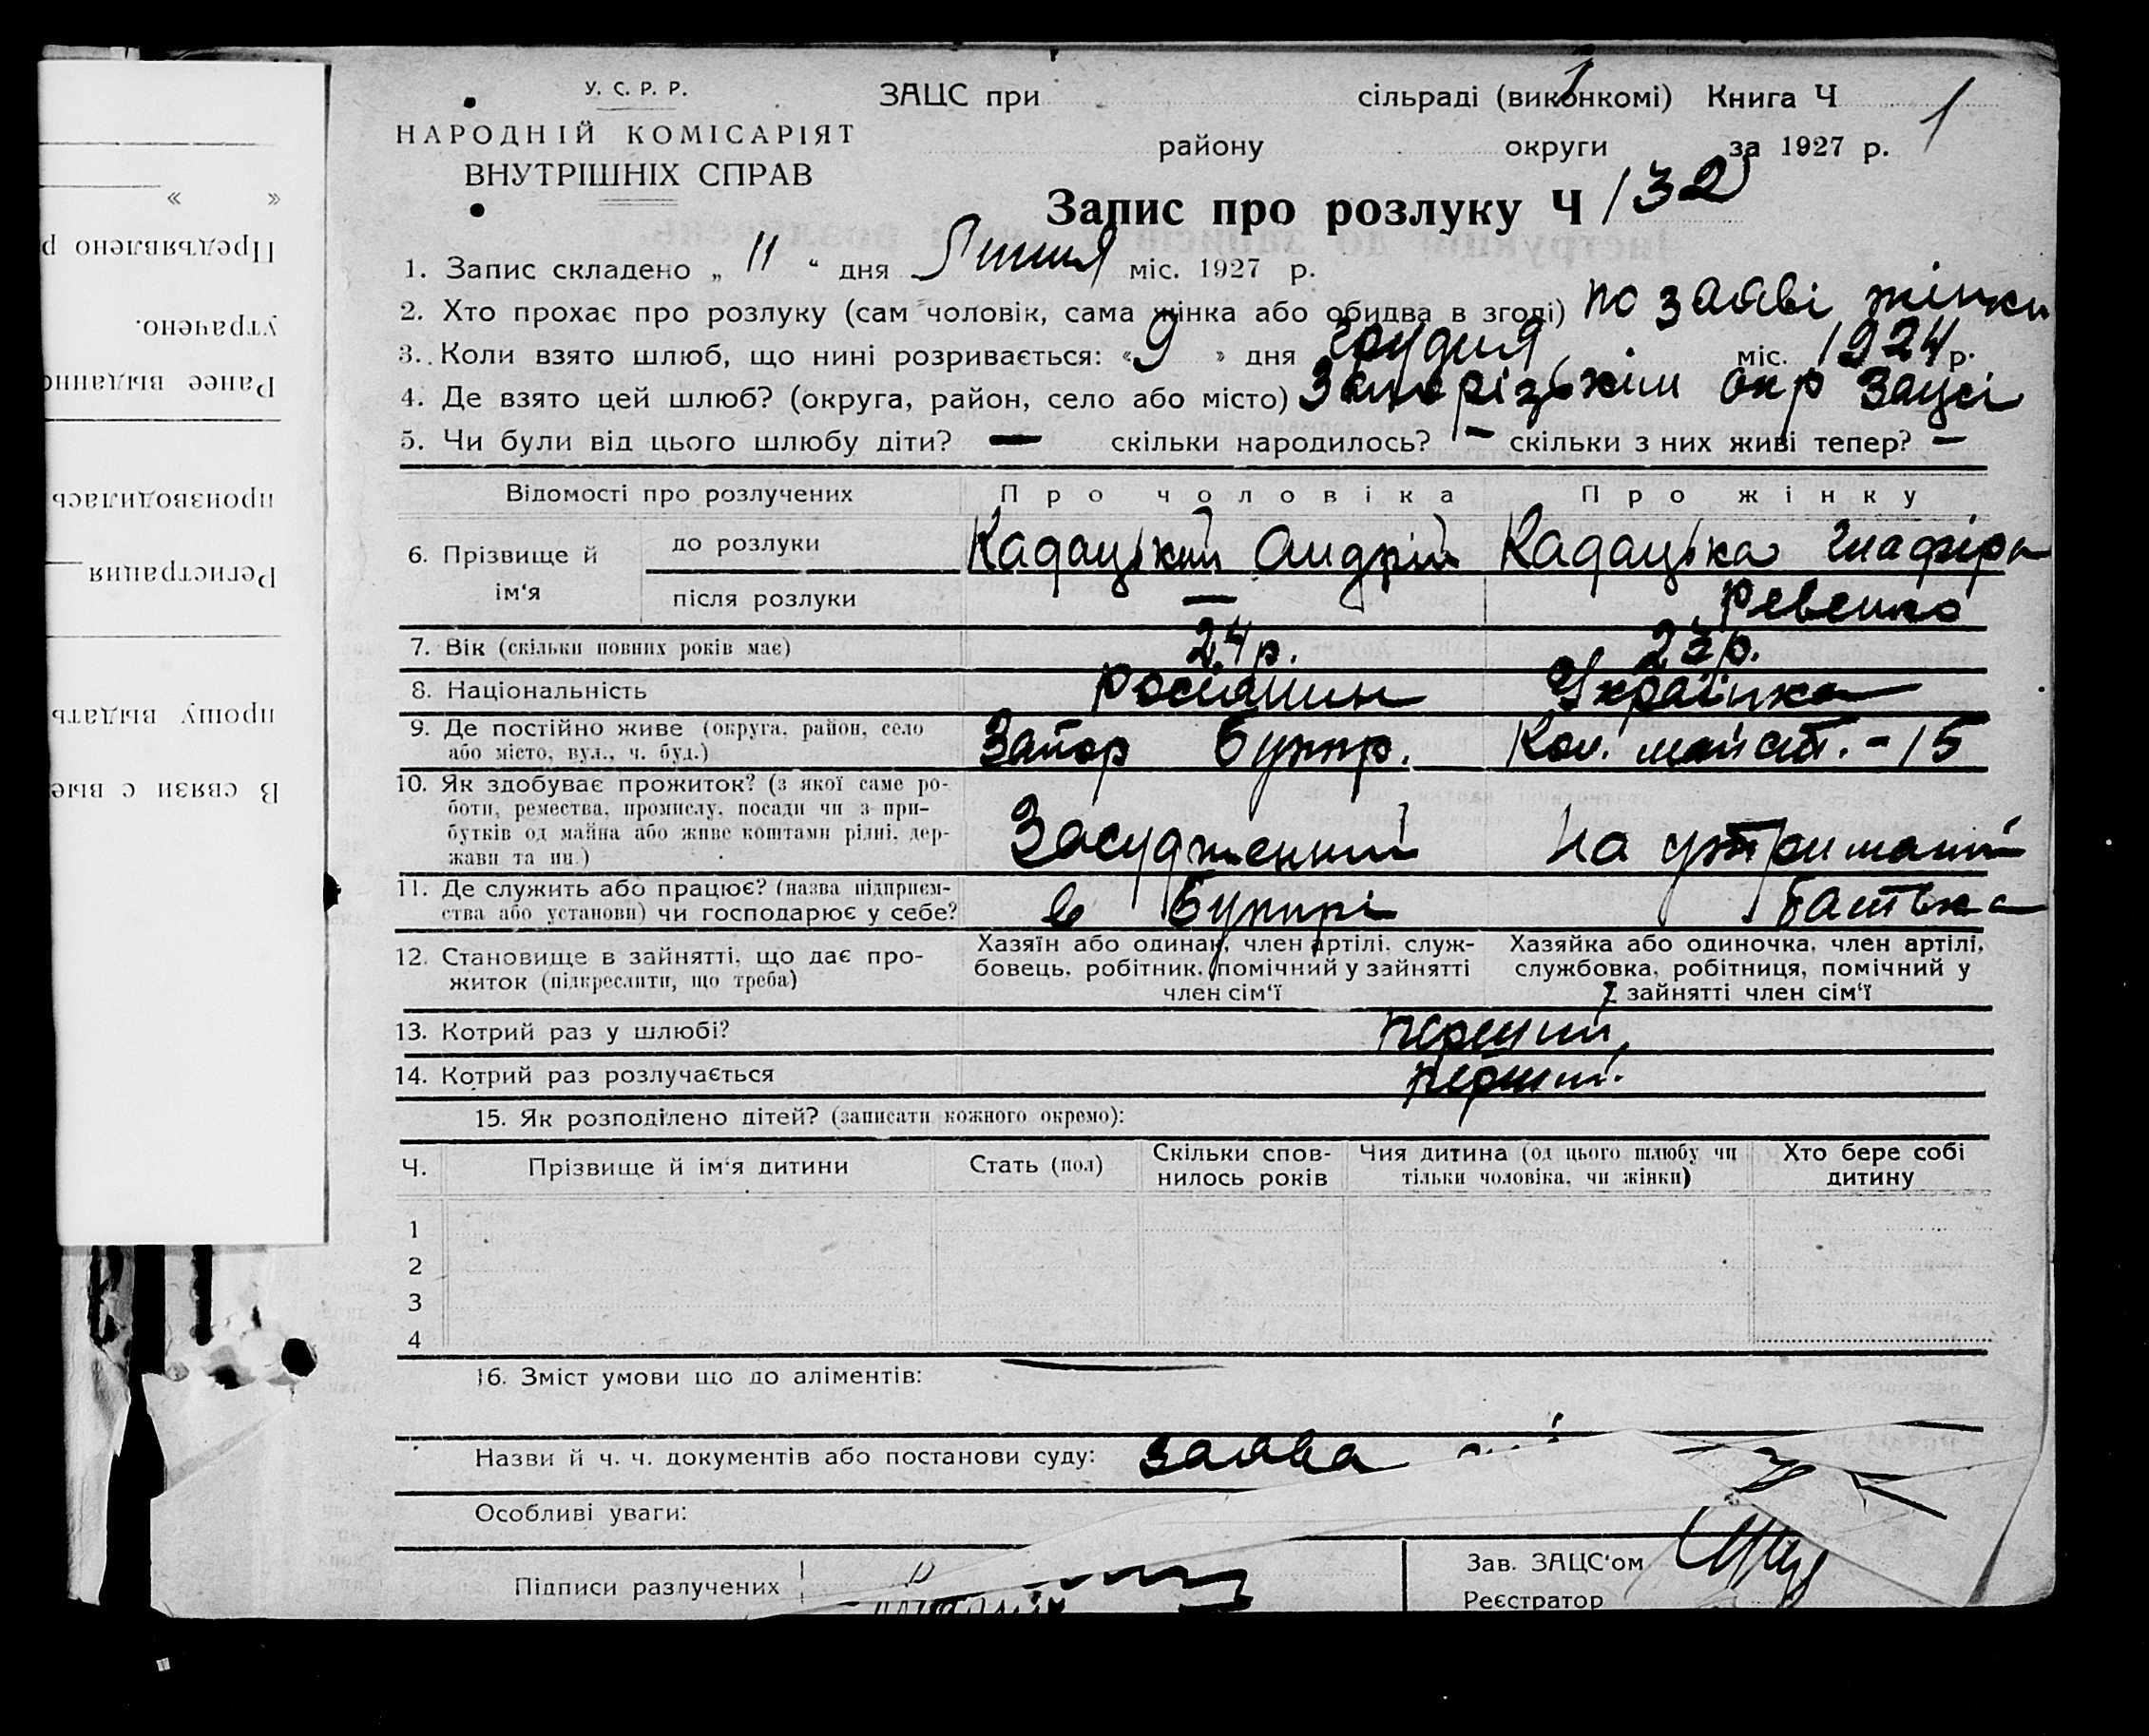 У. С. Р. Р.
НАРОДНІЙ КОМІСАРІЯТ
ВНУТРІШНІХ СПРАВ
ЗАЦС при сільраді (виконкомі) Книга Ч 1
району округи за 1927 р.
Запис про розлуку Ч 132
1. Запис складено „ 11 “ дня Липня міс. 1927 р.
2. Хто прохає про розлуку (сам чоловік, сама жінка або обидва в згоді) по заяві жінки
3. Коли взято шлюб, що нині розривається: « 9 » дня Грудня міс. 1924 р.
4. Де взято цей шлюб? (округа, район, село або місто) Запорізькім окр Зацсі
5. Чи були від цього шлюбу діти? — скільки народилось? — скільки з них живі тепер? —
Відомості про розлучених Про чоловіка Про жінку
6. Прізвище й ім‘я
до розлуки Кадацький Андрій Кадацька Глафіра
після розлуки — Ревенко
7. Вік (скільки повних років має) 24 р. 23 р.
8. Національність росіянин Українка
9. Де постійно живе (округа, район, село
або місто, вул., ч. буд.) Запор Бупр. Кол. майст. - 15
10. Як здобуває прожиток? (з якої саме ро-
боти, ремества, промислу, посади чи з при-
бутків од майна або живе коштами рідні, дер-
жави та ин.) Засудженний На утриманні
11. Де служить або працює? (назва підприєм-
ства або установи) чи господарює у себе? в Бупрі батька
12. Становище в зайнятті, що дає про-
житок (підкреслити, що треба)
Хазяїн або одинак, член артілі, служ-
бовець, робітник, помічний у зайнятті
член сім‘ї
Хазяйка або одиночка, член артілі,
службовка, робітниця, помічний у
зайнятті член сім‘ї
13. Котрий раз у шлюбі? перший
14. Котрий раз розлучається перший.
15. Як розподілено дітей? (записати кожного окремо):
Ч. Прізвище й ім‘я дитини Стать (пол) Скільки спов-
нилось років Чия дитина (од цього шлюбу чи
тільки чоловіка, чи жінки) Хто бере собі
дитину
1
2
3
4
16. Зміст умови що до аліментів:
Назви й ч. ч. документів або постанови суду: заява
Особливі уваги:
Підписи разлучених
Зав. ЗАЦС‘ом
Реєстратор
« »
Предъявлено р
утрачено.
Ранее выданно
производилась
Регистрация
прошу выдать
В связи с выс